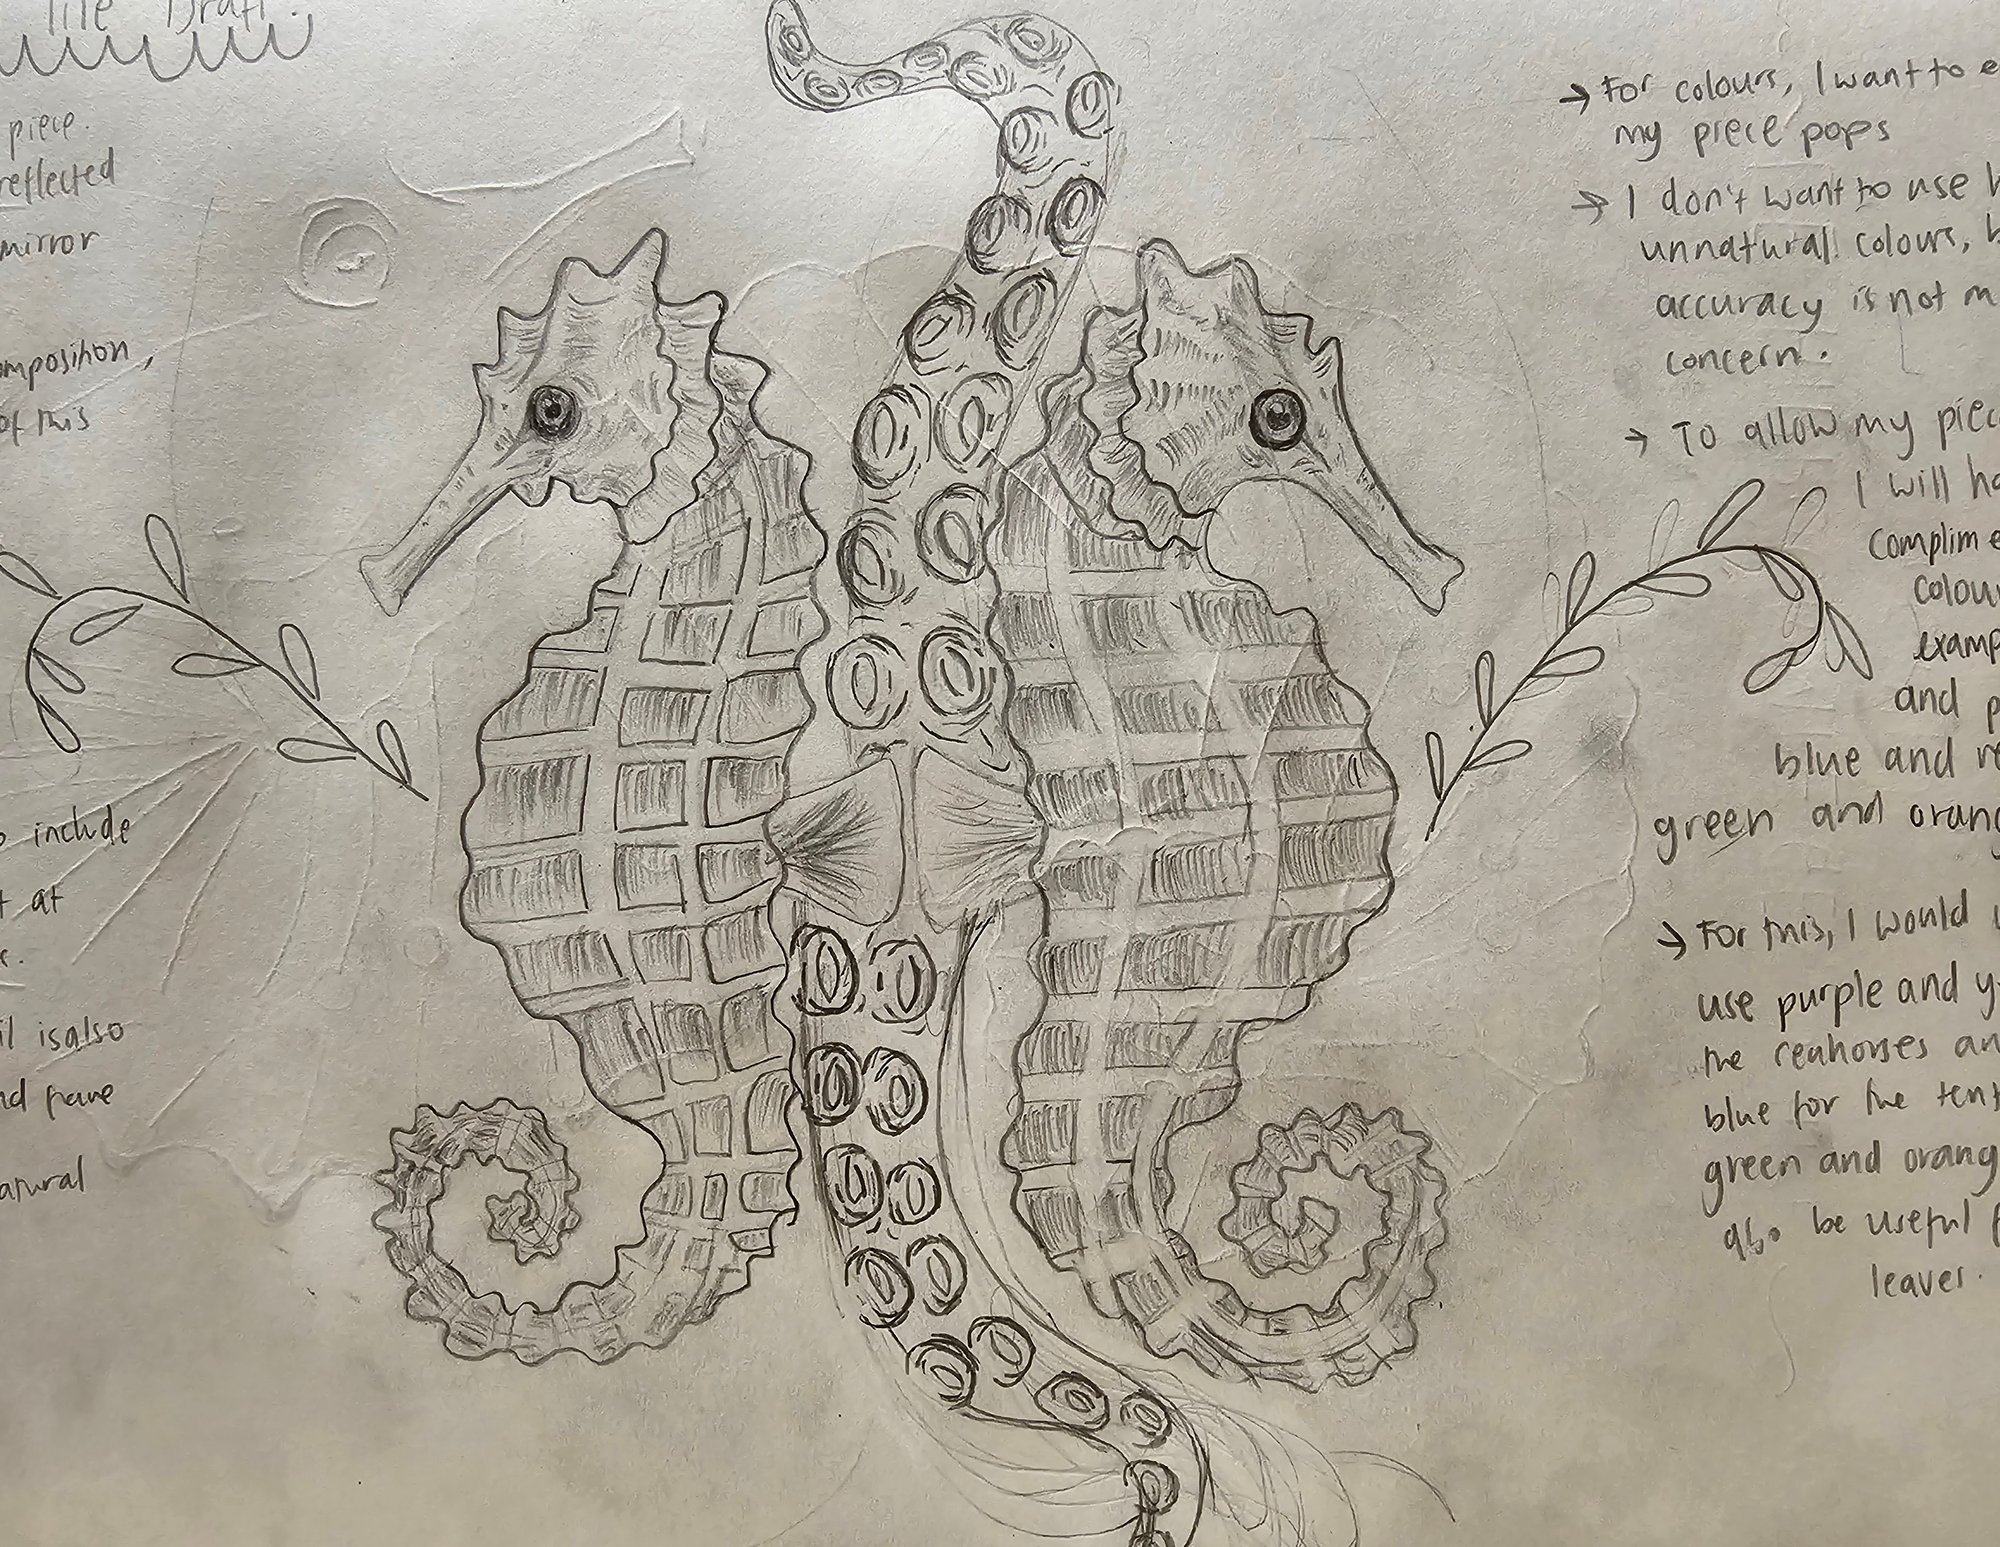 Tile Draft.
piece.
reflected
mirror
omposition,
of this
include
at
il is also
nd have
atural
→ For colours, I want to e
my piece pops
→ I don't want to use
unnatural colours, b
accuracy is not m
concern.
→ To allow my piec
I will ha
complime
colou
examp
and p
blue and re
green and orang
→ For this, I would u
use purple and y
the seahorses an
blue for the tent
green and orang
also be useful f
leaves.